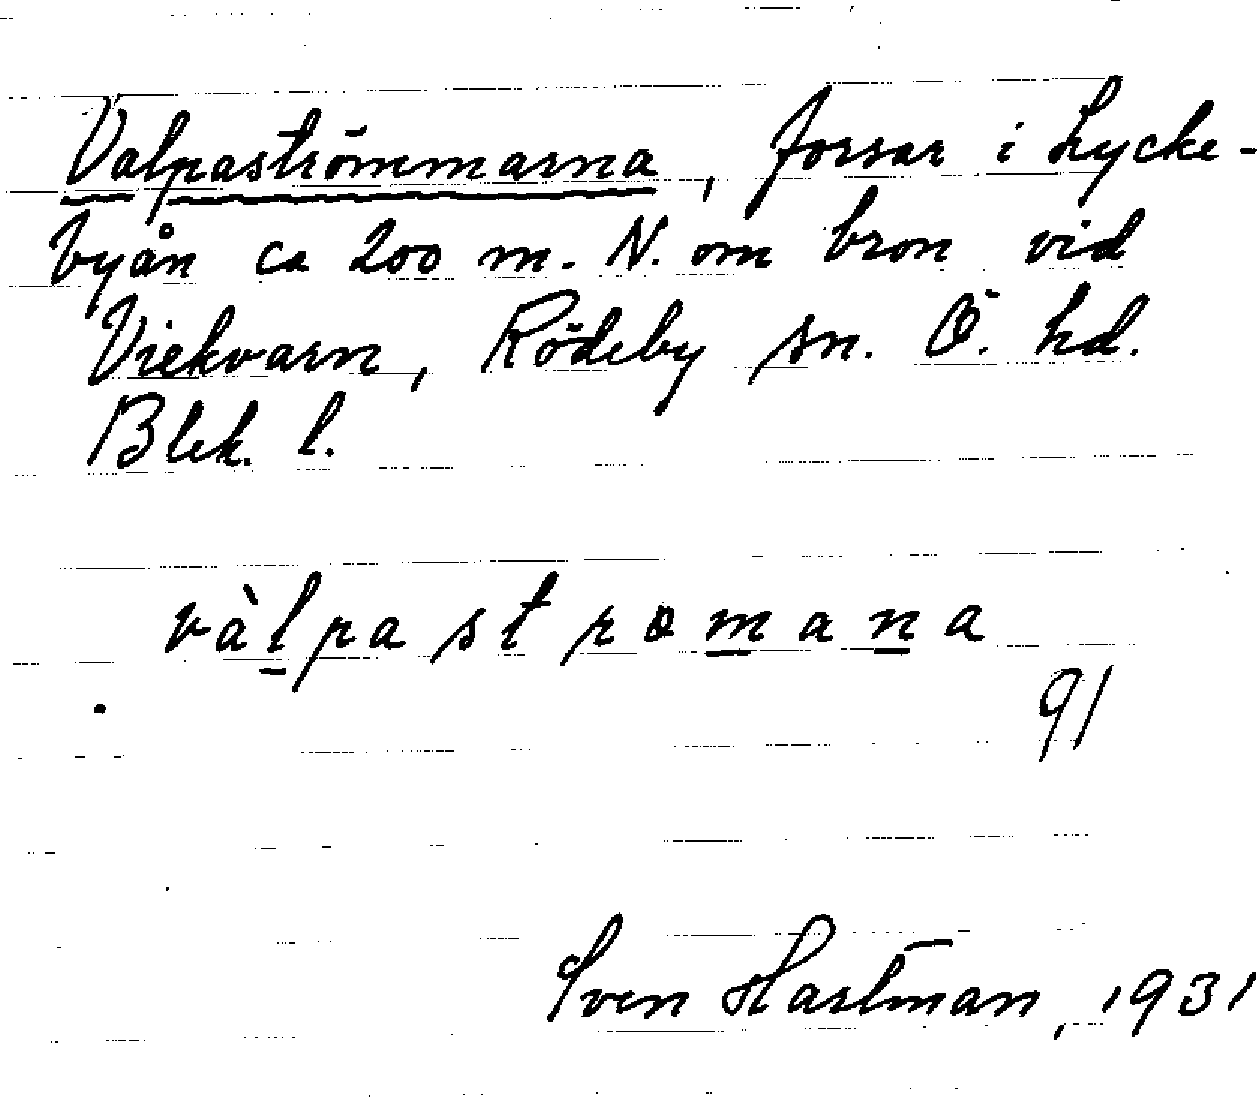 Valpaströmmarna, forsar i Lycke-
byån ca 200 m. N. om bron vid
Viekvarn, Rödeby sn. Ö. hd.
Blek. l.
vàlpastromana
91
Sven Hartman, 1931